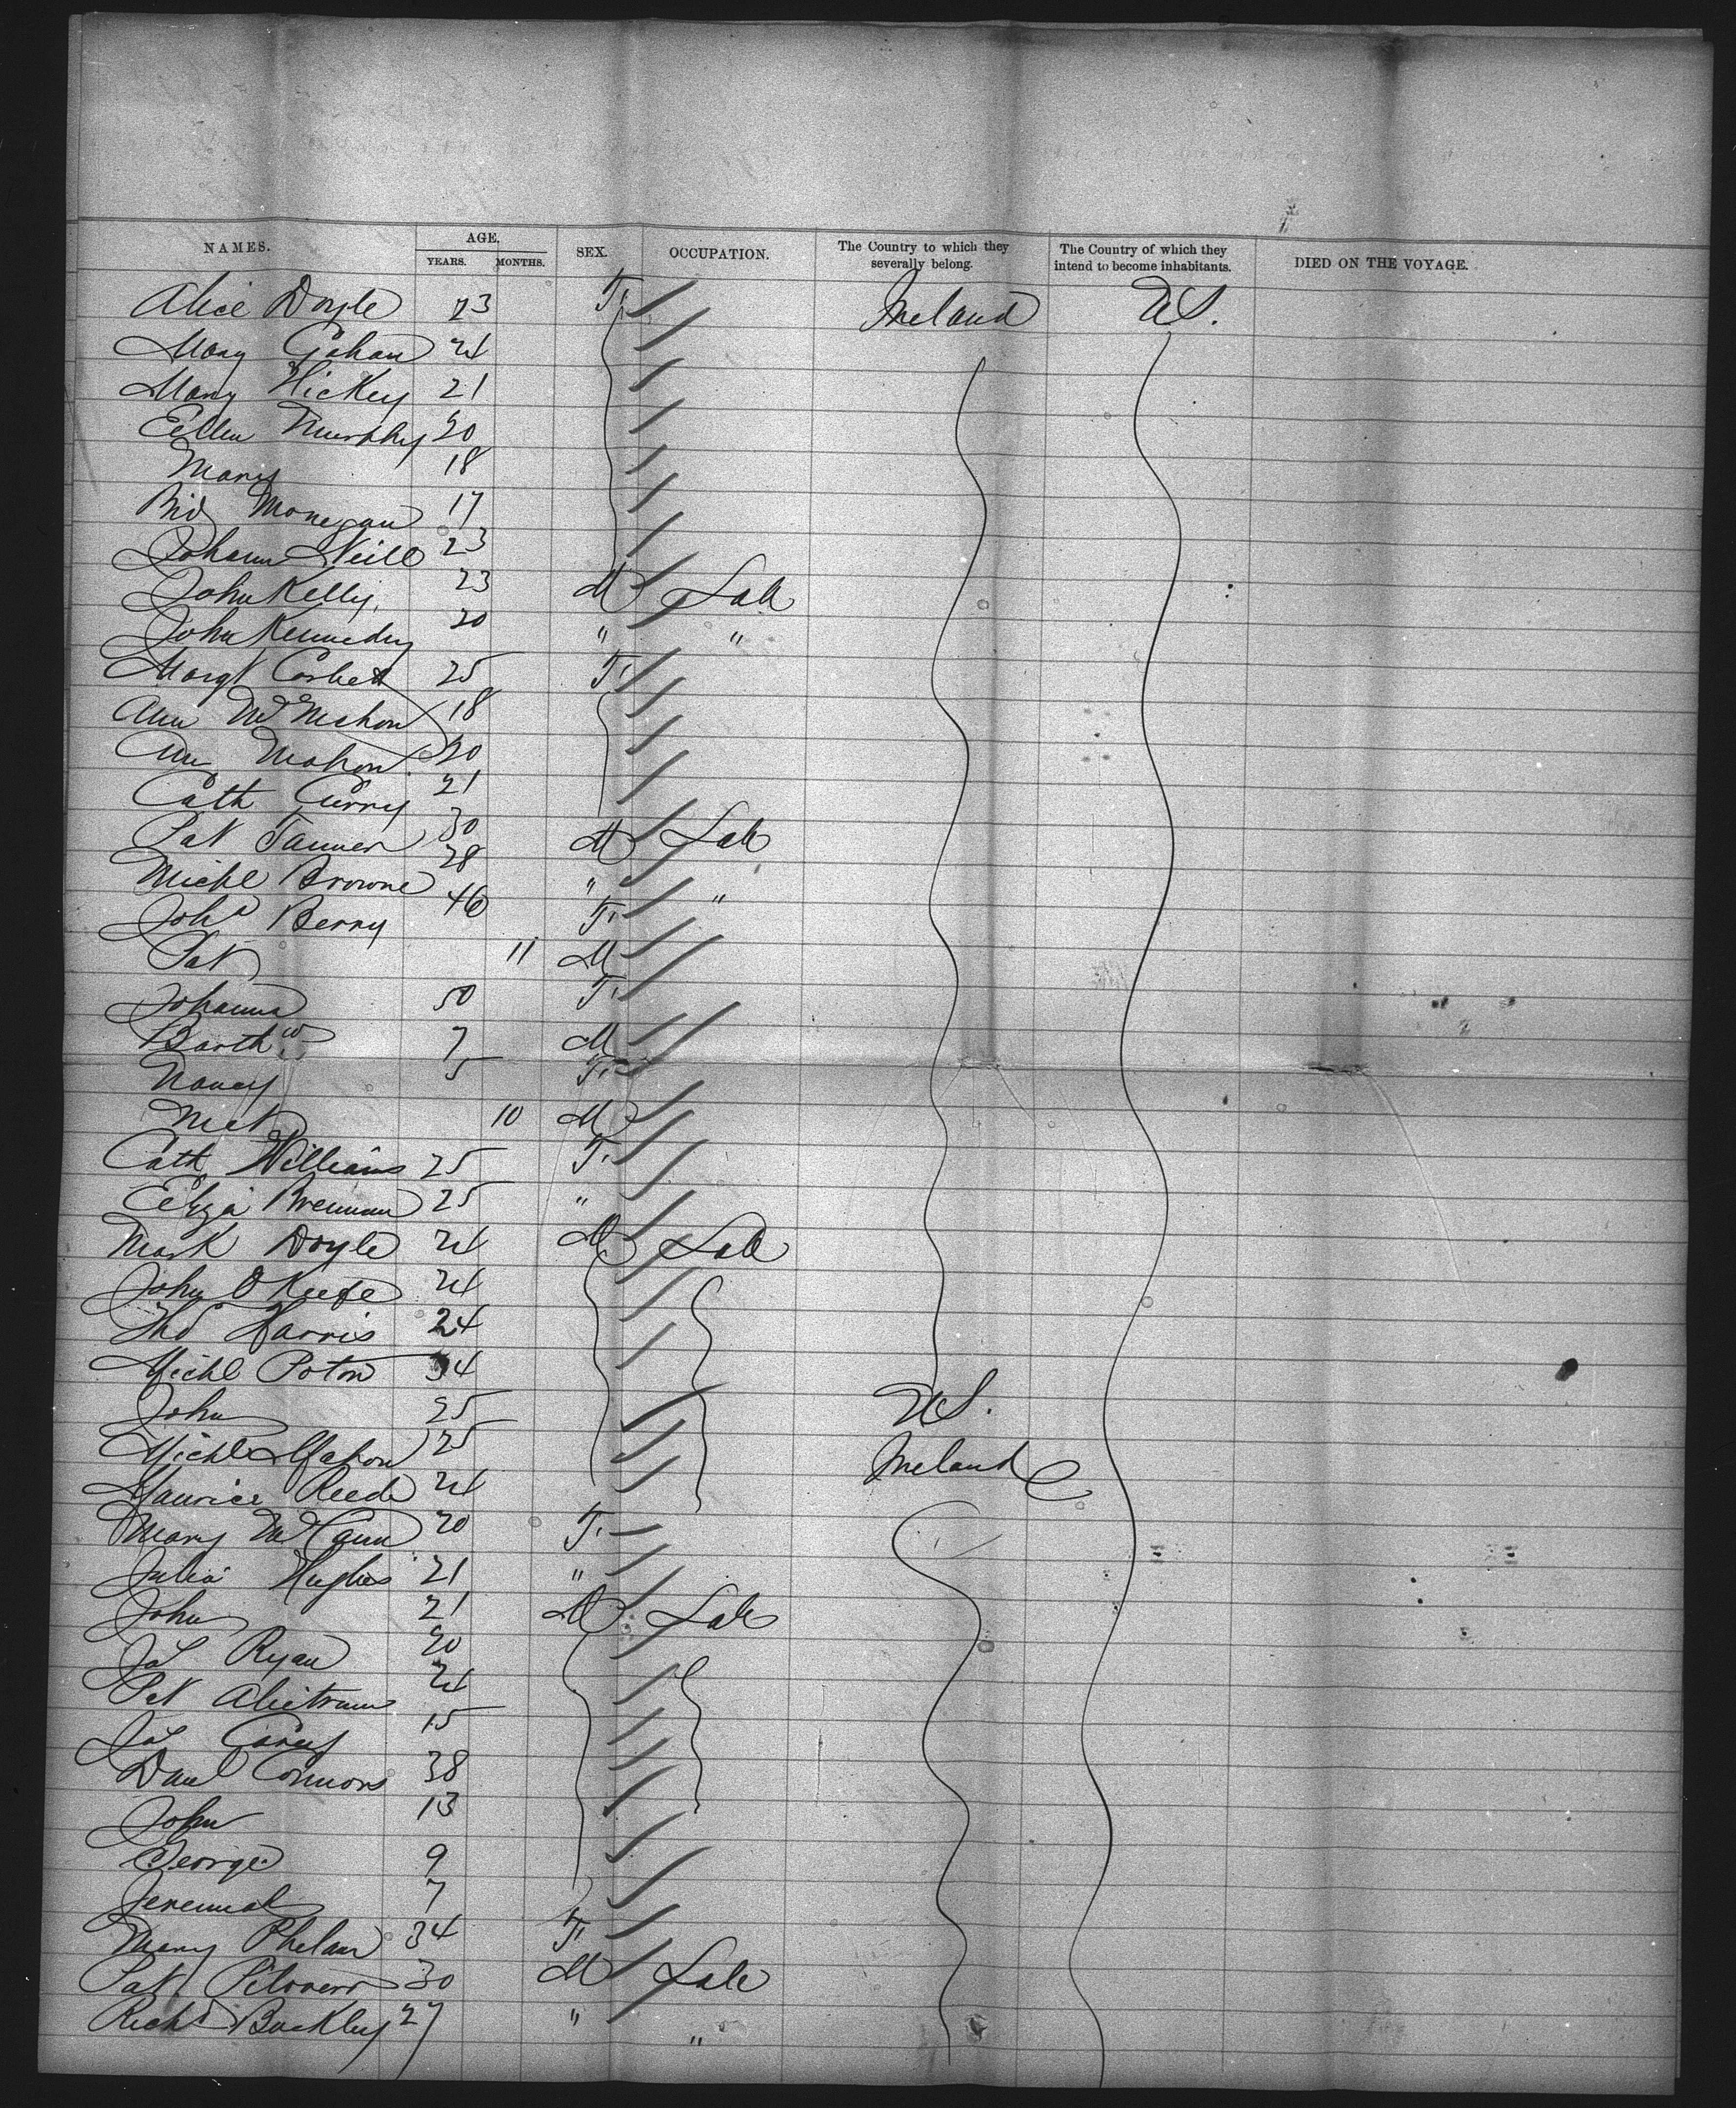 NAMES. AGE. YEARS. MONTHS. SEX. OCCUPATION. The Country to which they severally belong. The Country of which they intend to become inhabitants. DIED ON THE VOYAGE.
Alice Doyle 23 F Ireland U.S.
Mary Gahan 24
Mary Hickey 21
Ellen Murphy 20
Mary 18
Brid Monegan 17
Johann Neill 23
John Kelly 23 M Lab
John Kennedy 20 " "
Margt Corbett 25 F
Ann McMahon 18
Ann Mahon 20
Cath Curry 21
Pat 30 M Lab
Michl Browne 28 " "
Joha Berry 46 F
Pat 11 M
Johanna 50 F
Barthw 7 M
Nancy 5 F
10 M
Cath Williams 25 F
Eliza Brennan 25 "
Mark Doyle 24 M Lab
John O Keefe 24
Tho Harris 24
Michl Poton 34
John 25 U.S.
Michl Mahon 25 Ireland
Maurice 24
Mary McCann 20 F
Julia Hughes 21 "
John 21 M Lab
Jas Ryan 20
Pat 24
Jas Carey 15
Danl Connors 38
John 13
George 9
Jeremiah 7
Mary Phelan 34 F
Pat 30 M Lab
Richd Buckley 27 " "